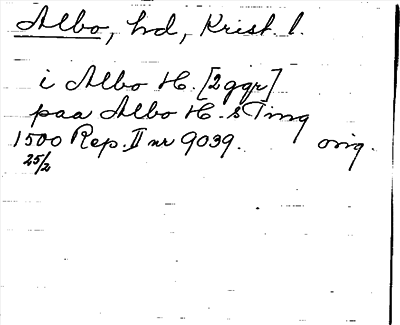 Albo, hd, Krist. l.
i Albo H. [2 ggr]
paa Albo H.s Ting
1500 Rep. II nr 9039. orig.
25/2